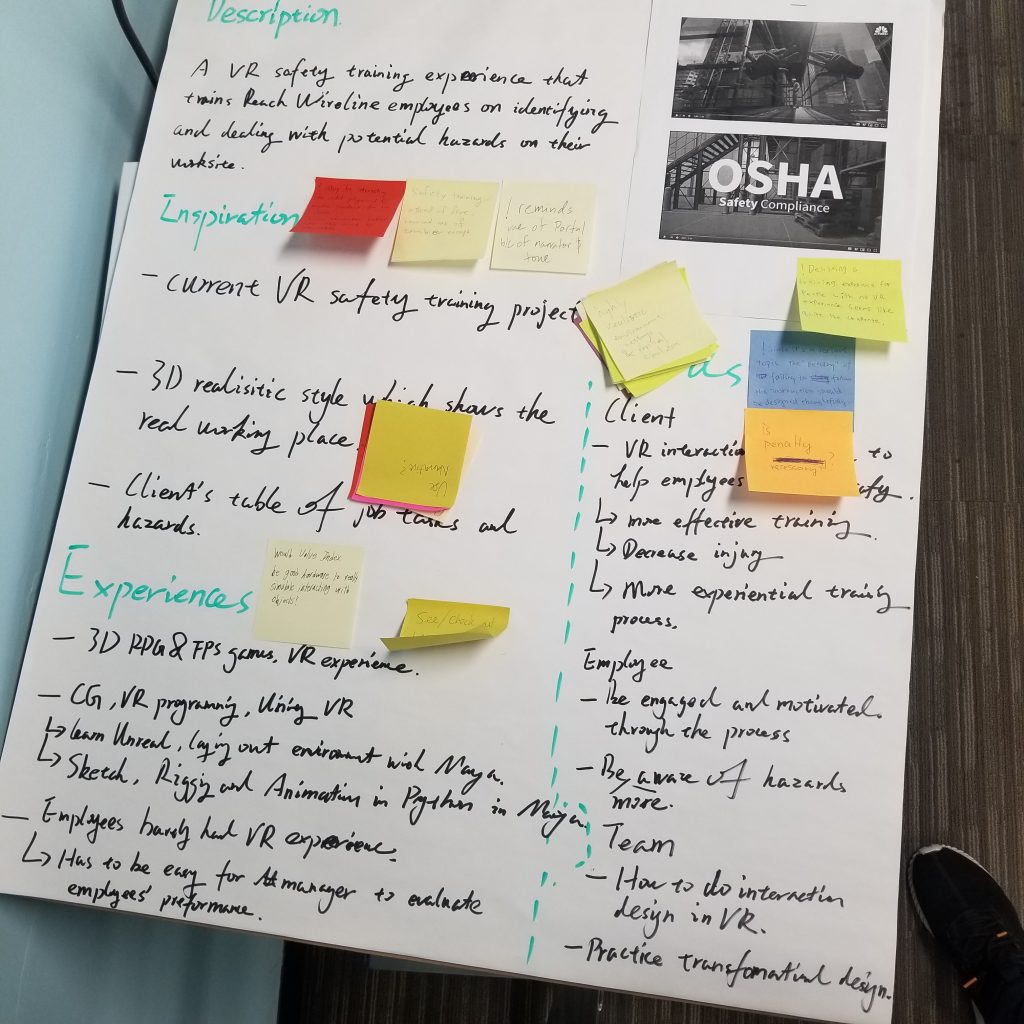 Description
A VR safety training experience that
trains Reach Wireline employees on identifying
and dealing with potential hazards on their
worksite.
OSHA
Safety Compliance
Inspiration
Safety training
! reminds
me of Portal
b/c of narrator &
tone
- current VR safety training project
highly
realistic
! Designing a
training experience for
people with no VR
experience seems like
quite the challenge.
- 3D realisitic style which shows the
real working place.
Use
Narrative?
- Client's table of job tasks and
hazards.
Experiences
Would Valve Index
be good hardware to really
simulate interacting with
objects?
See/Check out
- 3D RPG & FPS games, VR experience.
- CG, VR programming, Using VR
↳ learn Unreal, laying out environment with Maya.
↳ Sketch, Rigging and Animation in Python in Maya.
- Employees barely had VR experience.
↳ Has to be easy for manager to evaluate
employees' preformance.
us
topic the "penalty" of
failing to follow
the instruction should
be designed thoughtfully
is
penalty
necessary?
Client
- VR interaction to
help employees
↳ more effective training.
↳ Decrease injury
↳ More experiential training
process.
Employee
- Be engaged and motivated.
through the process
- Be aware of hazards
more.
Team
- How to do interaction
design in VR.
- Practice transfomational design.